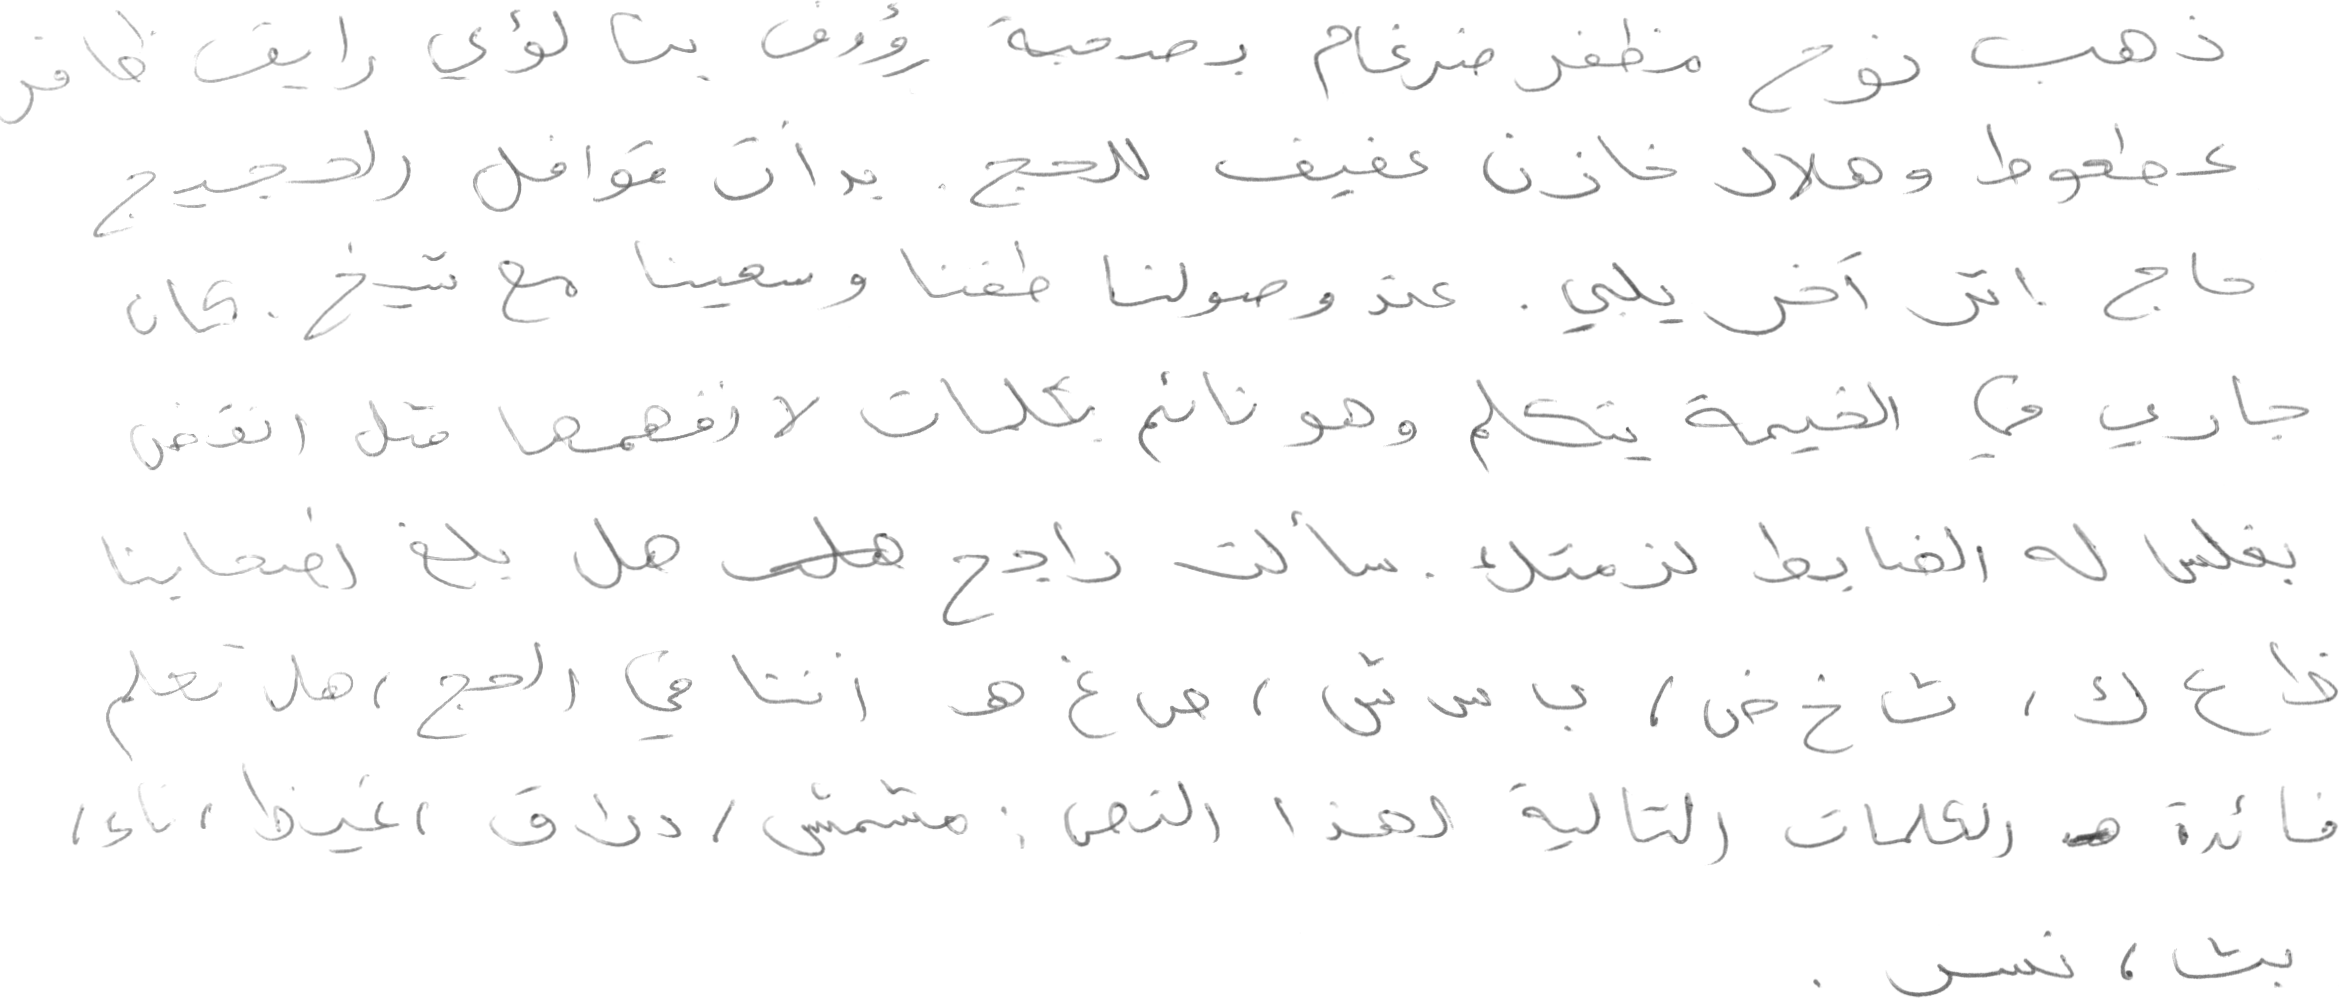 ذهب نوح مظفر ضرغام بصحبة رؤوف بن لؤي رايق ظافر
عطعوط وهلال خازن عفيف للحج. بدأت قوافل الحجيج
حاج إثر آخر يلبي. عند وصولنا طفنا وسعينا مع شيخ. كان
جاري في الخيمة يتكلم وهو نائم بكلمات لا أفهمها مثل انقض
بغلس له الضابط لزمتك. سألت راجح هل بلغ أضحاينا
ظ ع ك، ث خ ض، ب س ش، ص غ هـ أننا في الحج، هل تعلم
فائدة الكلمات التالية لهذا النص: مشمش، دراق، غيظ، ناء،
بث، نسر.